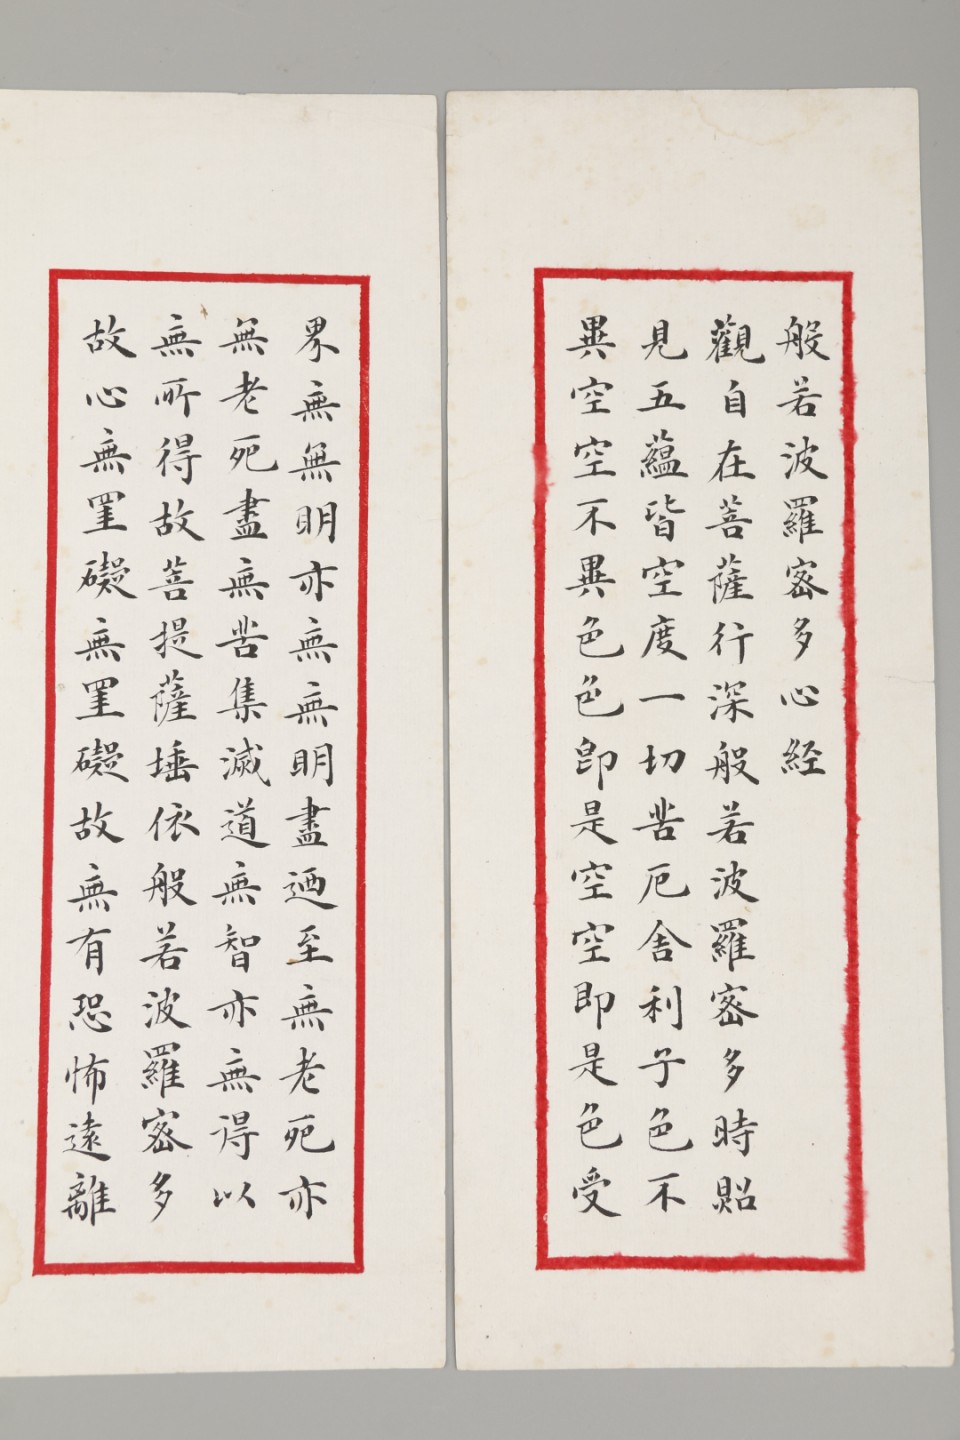 般若波羅密多心経
觀自在菩薩行深般若波羅密多時照
見五蘊皆空度一切苦厄舍利子色不
異空空不異色色卽是空空即是色受
界無無明亦無無明盡迺至無老死亦
無老死盡無苦集滅道無智亦無得以
無所得故菩提薩埵依般若波羅密多
故心無罣礙無罣礙故無有恐怖遠離